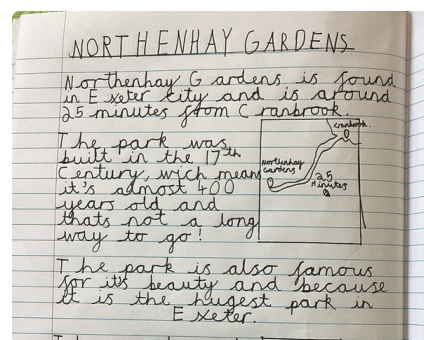 NORTHENHAY GARDENS
Northenhay Gardens is found
in Exeter city and is around
25 minutes from Cranbrook.
The park was
built in the 17th
Century, wich means
it's almost 400
years old and
thats not a long
way to go!
Cranbrook.
Northenhay
Gardens
25
Minutes
The park is also famous
for it's beauty and because
it is the hugest park in
Exeter.